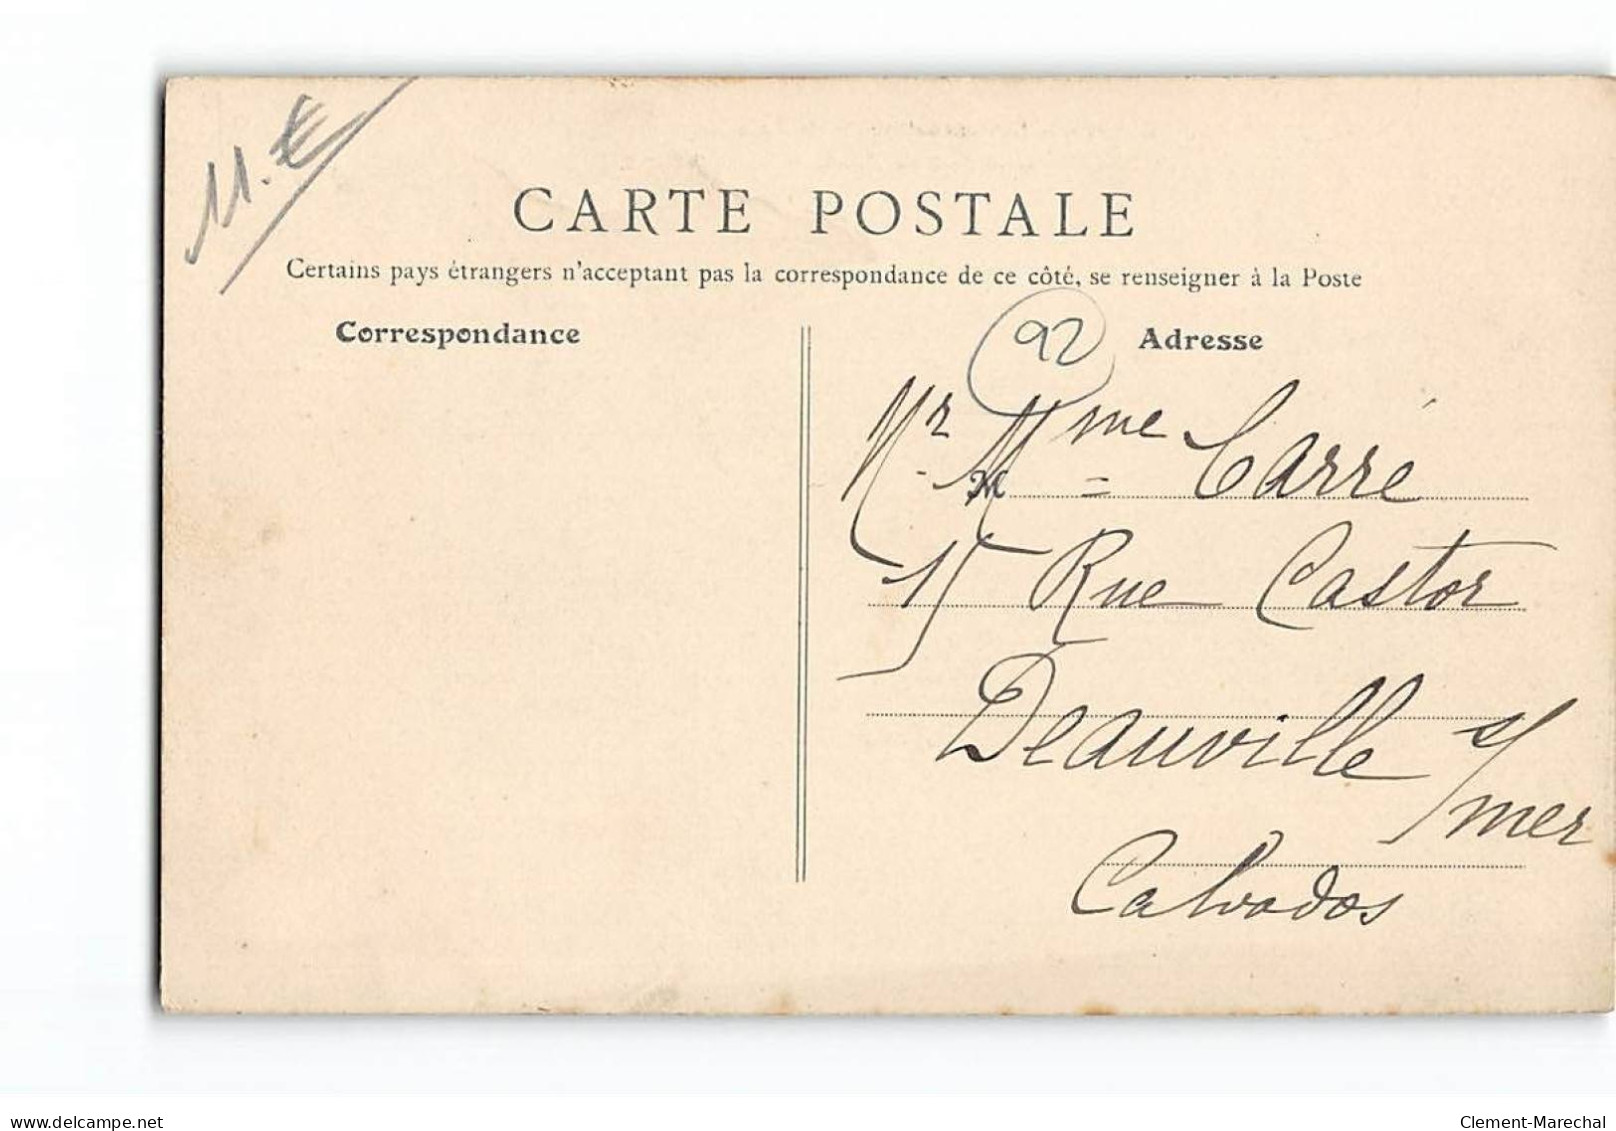 11.€
CARTE POSTALE
Certains pays étrangers n'acceptant pas la correspondance de ce côté, se renseigner à la Poste
Correspondance
92
Adresse
Mr Mme Carré
M
15 Rue Castor
Deauville s/
mer
Calvados
www.delcampe.net
Clement-Marechal